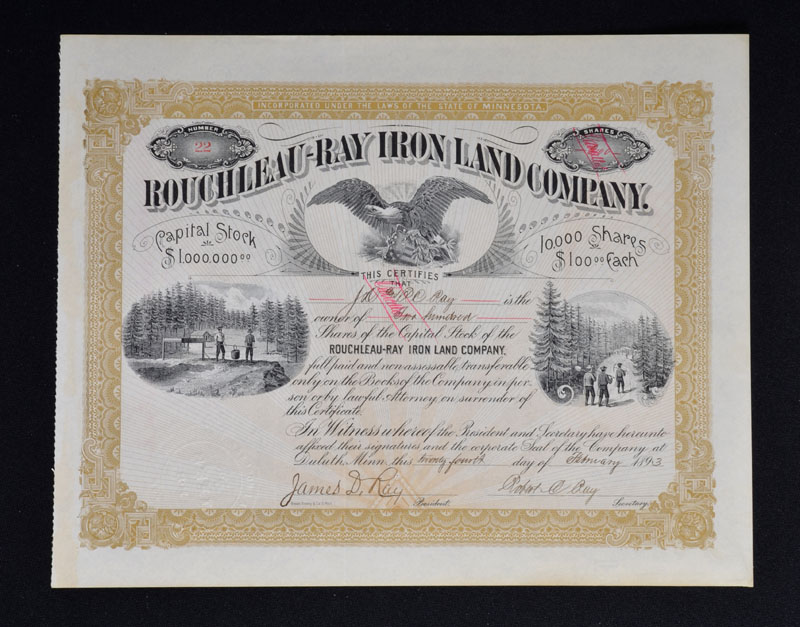 INCORPORATED UNDER THE LAWS OF THE STATE OF MINNESOTA.
NUMBER
22
SHARES
ROUCHLEAU-RAY IRON LAND COMPANY.
Capital Stock
$1,000,000.00
10,000 Shares
$100.00 Each
THIS CERTIFIES
THAT
Ray is the
owner of hundred
Shares of the Capital Stock of the
ROUCHLEAU-RAY IRON LAND COMPANY.
full paid and non assessable, transferable
only on the Books of the Company in per-
son or by lawful Attorney on surrender of
this Certificate.
In Witness whereof the President and Secretary have hereunto
affixed their signatures and the corporate Seal of the Company at
Duluth, Minn. this twenty fourth day of February 1893
James D. Ray
President.
Robert C Ray
Secretary.